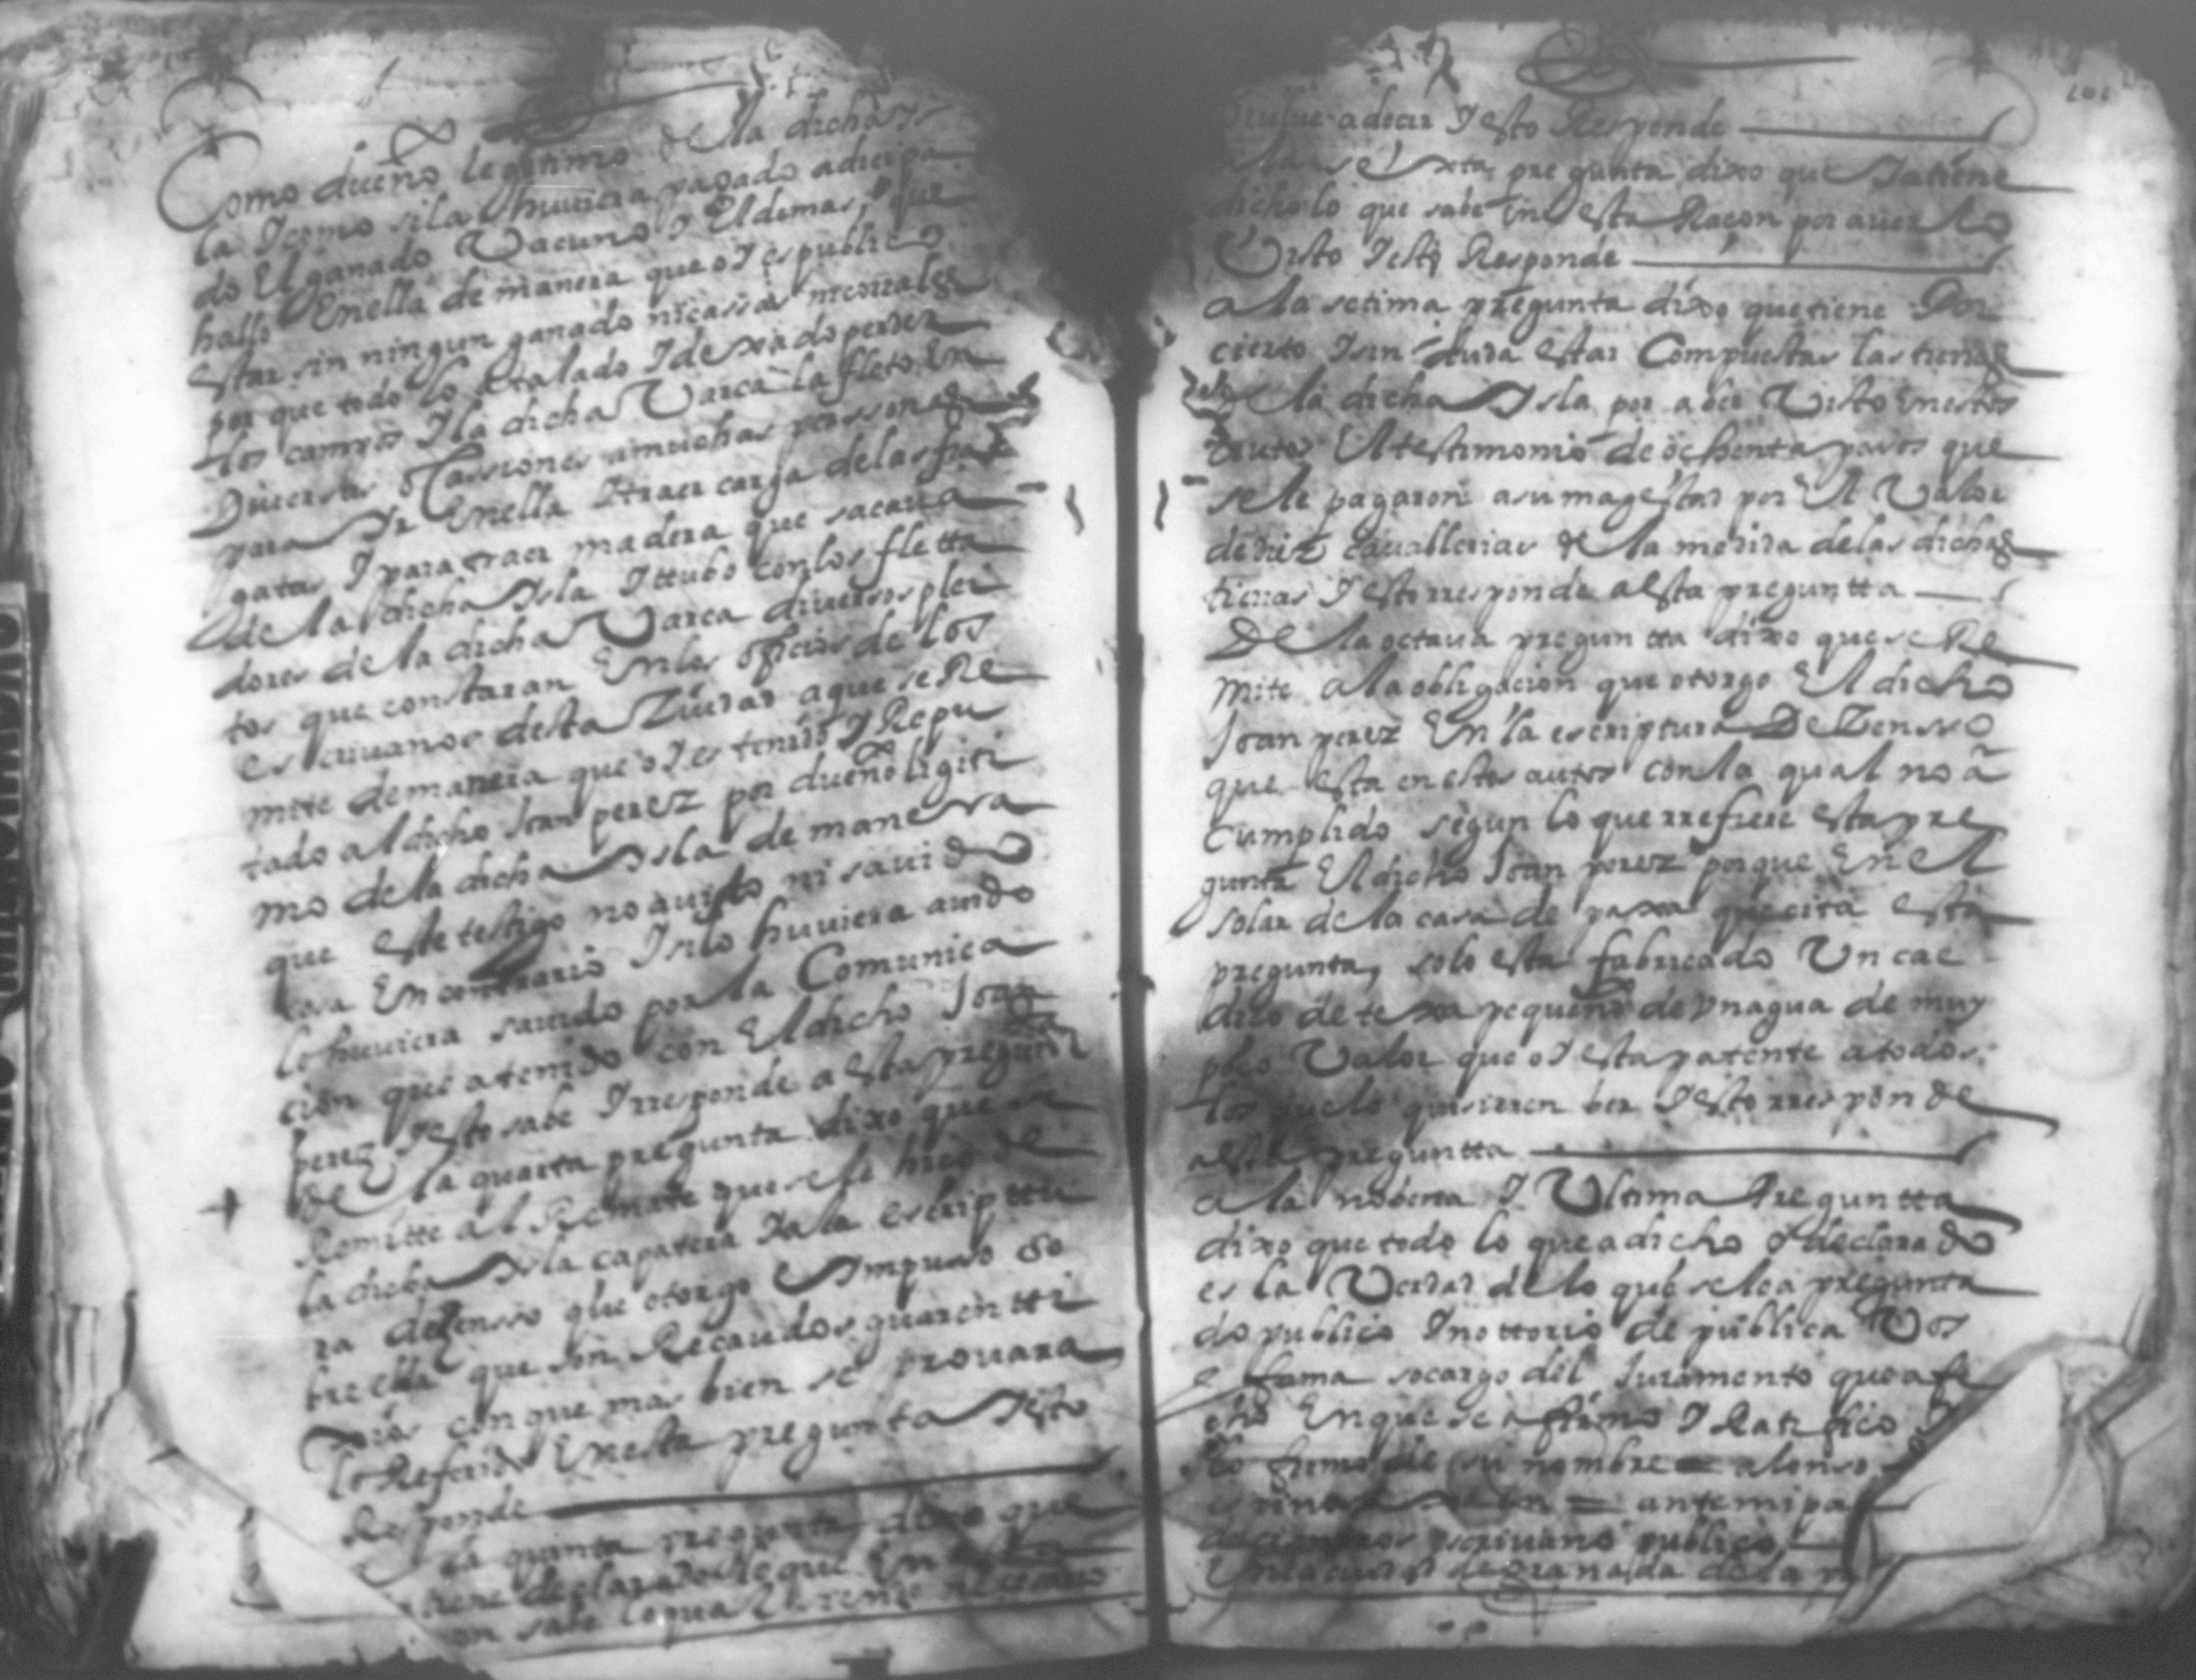 Como dueño legitimo de la dicha Is
la I como si la huuiera pagado adicipa
do El ganado Vacuno I El demas que
hallo En ella de manera que oI es publico
estar sin ningun ganado ni cassas ni corrales
por que todo lo a talado I dexado perder
los campos I la dicha Varca la fleto En
Diuersas ocassiones a muchas perssonas
para Ir En ella I traer carga de las fra
gatas I para traer madera que sacaua
de la dicha Isla I ttubo con los fletta
dores de la dicha Varca diuersos plei
tos que constaran En los oficios de los
escriuanos desta Ziudad a que se Re
mite de manera que oI es tenido I Repu
tado al dicho Joan perez por dueño ligiti
mo de la dicha Isla de manera
que este testigo no a uisto ni sauido
cosa En contrario I si lo huuiera auido
lo huuiera sauido por la Comunica
cion que a tenido con El dicho Joan
perez I esto sabe I rresponde a esta pregunta
De la quarta pregunta dixo que se
Remitte al Remate que se le hizo de
la dicha Isla capatera I a la escripttu
ra de Zensso que otorgo E Impusso so
bre ella que son Recaudos guarentti
Jios con que mas bien se prouara
lo Referido En esta pregunta I esto
Responde
la quinta pregunta dixo que
tiene declarado lo que En esta
on sabe lo qual
buelue a decir I esto Responde
a la sexta pregunta dixo que Ia tiene
dicho lo que sabe En esta Raçon por auerlo
Visto I esto Responde
a la setima pregunta dixo que tiene Por
cierto I sin duda estar Compuestas las tierras
de la dicha Isla por aber Visto En estos
autos El testimonio de ochenta pesos que
se le pagaron a su magestad por El Valor
de diez cauallerias de la medida de las dichas
tierras I esto rresponde a esta preguntta
De la octaua preguntta dixo que se Re
mite a la obligacion que otorgo El dicho
Joan perez En la escriptura De Zensso
que esta en estos autos con la qual no a
Cumplido segun lo que rrefiere esta pre
gunta El dicho Joan perez porque En el
solar de la casa de paxa que cita esta
pregunta, solo esta fabricado Un cae
dizo de texa pequeño de Un agua de muy
poco Valor que oI esta patente a todos
los que lo quisieren ber I esto rresponde
a esta preguntta
a la nobena I Ultima Preguntta
dixo que todo lo que a dicho I declarado
es la Verdad de lo que se le a pregunta
do publico I nottorio de publica Vos
e fama so cargo del Juramento que a fe
cho En que se afirmo I Ratifico I
lo firmo de su nombre = alonso
= ante mi
escriuano publico
En la ciudad de Granada de la n
101